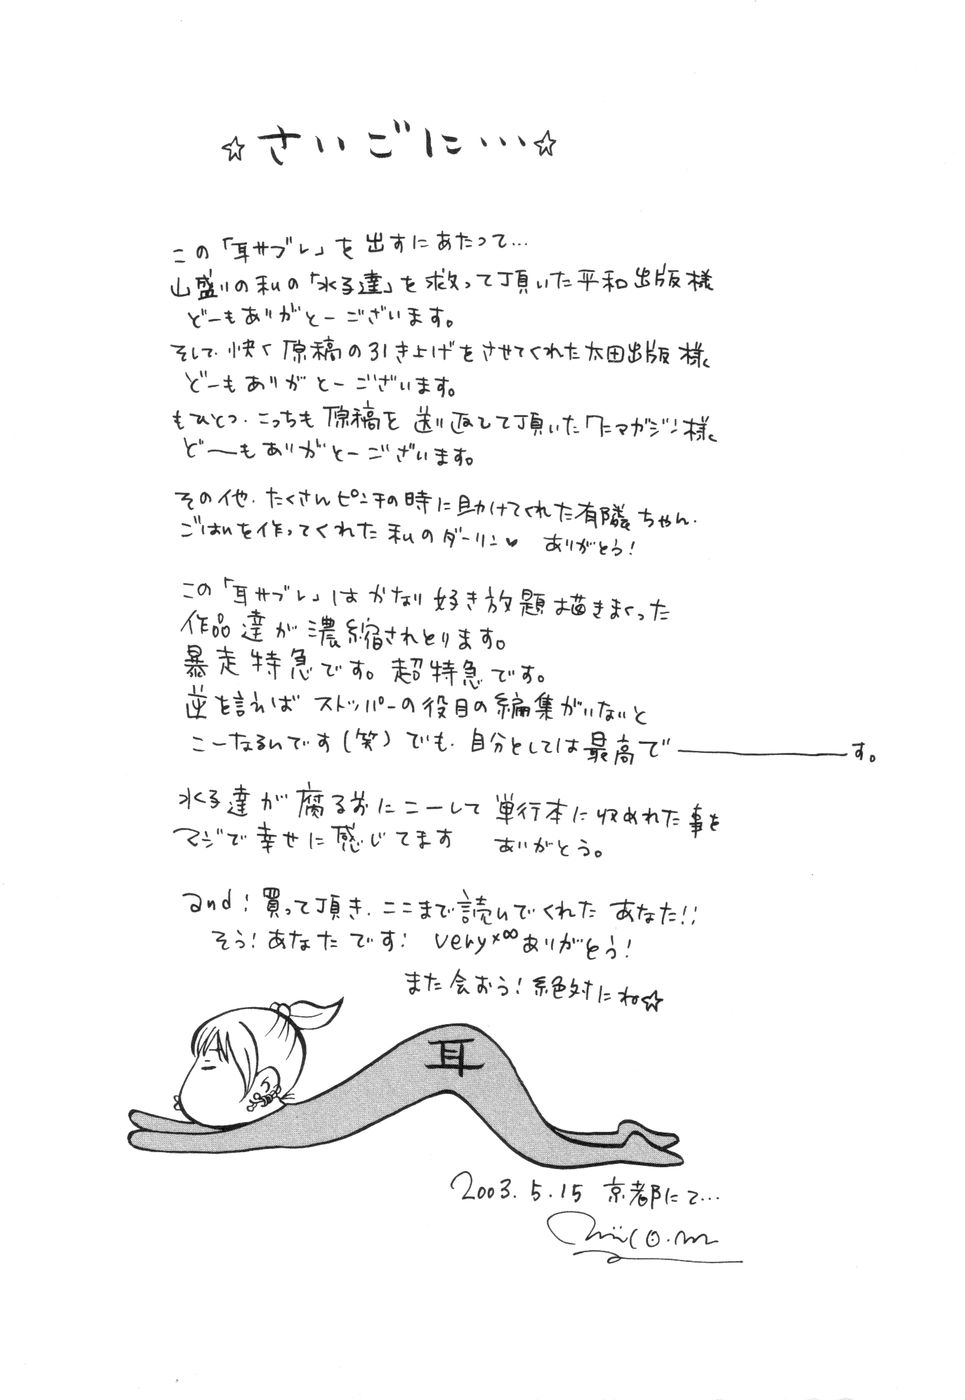 ☆さいごに…☆
この「耳サブレ」を出すにあたって…
山盛りの私の「水子達」を救って頂いた平和出版様
どーもありがとーございます。
そして、快く原稿の引き上げをさせてくれた太田出版様、
どーもありがとーございます。
もひとつ、こっちも原稿を送り返して頂いたワニマガジン様、
ど〜もありがとーございます。
その他、たくさんピンチの時に助けてくれた有隣ちゃん、
ごはんを作ってくれた私のダーリン♥ ありがとう!
この「耳サブレ」はかなり好き放題描きまくった
作品達が濃縮されとります。
暴走特急です。超特急です。
逆を言えばストッパーの役目の編集がいないと
こーなるんです(笑)でも、自分としては最高で―――――す。
水子達が腐る前にこーして単行本に収めれた事を
マジで幸せに感じてます ありがとう。
and! 買って頂き、ここまで読んでくれた あなた!!
そう!あなたです! very×∞ありがとう!
また会おう!絶対にね☆
耳
2003.5.15 京都にて…